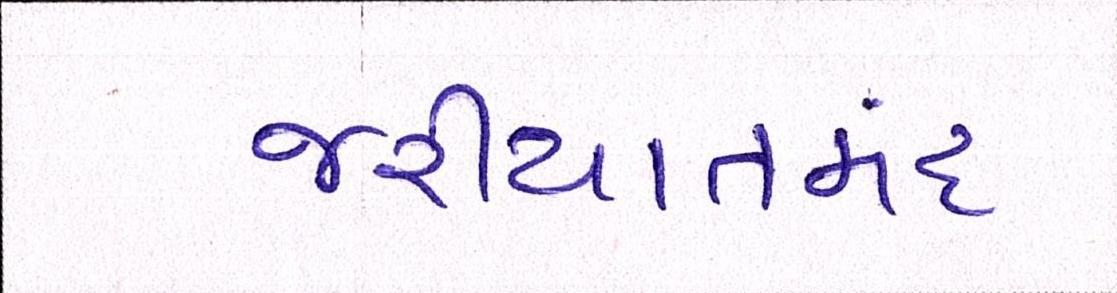 જરીયાતમંદ